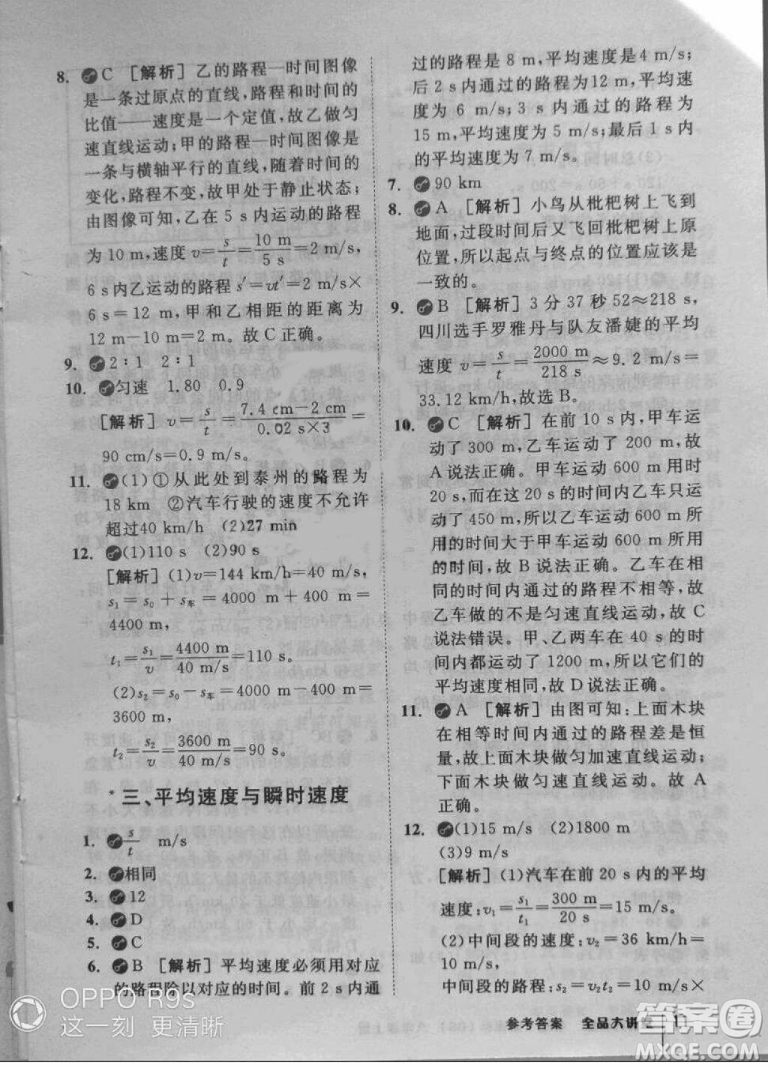 8. C [解析]乙的路程—时间图像
是一条过原点的直线,路程和时间的
比值——速度是一个定值,故乙做匀
速直线运动;甲的路程—时间图像是
一条与横轴平行的直线,随着时间的
变化,路程不变,故甲处于静止状态;
由图像可知,乙在 5 s 内运动的路程
为 10 m,速度 v=s/t=10 m/5 s=2 m/s,
6 s 内乙运动的路程 s′=vt′=2 m/s×
6 s=12 m,甲和乙相距的距离为
12 m-10 m=2 m。故 C 正确。
9. 2∶1 2∶1
10. 匀速 1.80 0.9
[解析] v=s/t=7.4 cm-2 cm/0.02 s×3=
90 cm/s=0.9 m/s。
11. (1)①从此处到泰州的路程为
18 km ②汽车行驶的速度不允许
超过40 km/h (2)27 min
12. (1)110 s (2)90 s
[解析](1)v=144 km/h=40 m/s,
s₁=s₀+s车=4000 m+400 m=
4400 m,
t₁=s₁/v=4400 m/40 m/s=110 s。
(2)s₂=s₀-s车=4000 m-400 m=
3600 m,
t₂=s₂/v=3600 m/40 m/s=90 s。
三、平均速度与瞬时速度
1. s/t m/s
2. 相同
3. 12
4. D
5. C
6. B [解析]平均速度必须用对应
的路程除以对应的时间。前 2 s 内通
过的路程是 8 m,平均速度是4 m/s;
后 2 s 内通过的路程为12 m,平均速
度为 6 m/s;3 s 内通过的路程为
15 m,平均速度为 5 m/s;最后 1 s 内
的平均速度为 7 m/s。
7. 90 km
8. A [解析]小鸟从枇杷树上飞到
地面,过段时间后又飞回枇杷树上原
位置,所以起点与终点的位置应该是
一致的。
9. B [解析] 3 分 37 秒 52≈218 s,
四川选手罗雅丹与队友潘婕的平均
速度 v=s/t=2000 m/218 s≈9.2 m/s=
33.12 km/h,故选 B。
10. C [解析]在前 10 s 内,甲车运
动了 300 m,乙车运动了 200 m,故
A 说法正确。甲车运动 600 m 用时
20 s,而在这 20 s 的时间内乙车只运
动了 450 m,所以乙车运动 600 m 所
用的时间大于甲车运动 600 m 的时
间,故 B 说法正确。乙车在相
同的时间内通过的路程不相等,故
乙车做的不是匀速直线运动,故 C
说法错误。甲、乙两车在 40 s 的时
间内都运动了 1200 m,所以它们的
平均速度相同,故 D 说法正确。
11. A [解析]由图可知:上面木块
在相等时间内通过的路程差是恒
量,故上面木块做匀加速直线运动;
下面木块做匀速直线运动。故 A
正确。
12. (1)15 m/s (2)1800 m
(3)9 m/s
[解析](1)汽车在前 20 s 内的平均
速度:v₁=s₁/t₁=300 m/20 s=15 m/s。
(2)中间段的速度:v₂=36 km/h=
10 m/s,
中间段的路程:s₂=v₂t₂=10 m/s×
OPPO R9s
这一刻 更清晰
参考答案 全品大讲堂
答案圈
MXQE.COM